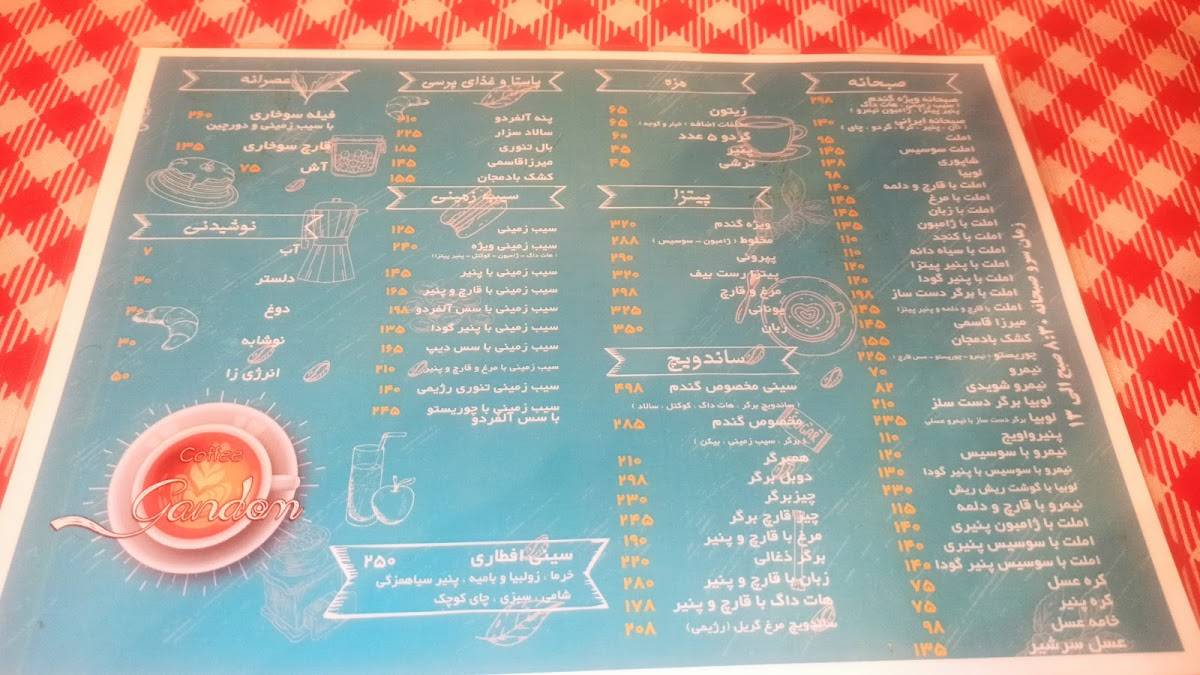 صبحانه
صبحانه ویژه گندم ۲۹۸
صبحانه ایرانی ۱۴۰
( نان ، پنیر ، کره ، گردو ، چای )
املت ۹۵
املت با سوسیس ۱۴۵
شاپوری ۱۳۸
لوبیا ۹۸
املت با قارچ و دلمه ۱۴۰
املت با مرغ ۱۴۵
املت با زبان ۱۴۵
املت با ژامبون ۱۳۵
املت با کنجد ۱۱۰
املت با سیاه دانه ۱۱۰
املت با پنیر پیتزا ۱۲۰
املت با پنیر گودا ۱۲۰
املت با برگر دست ساز ۱۹۸
املت با قارچ و دلمه و پنیر پیتزا ۱۴۵
میرزا قاسمی ۱۴۵
کشک بادمجان ۱۵۵
چوریستو ۲۲۵
نیمرو ۷۰
نیمرو شویدی ۸۲
لوبیا برگر دست ساز ۲۱۰
لوبیا برگر دست ساز با نیمرو عسلی ۲۳۵
پنیرواویچ ۱۱۰
نیمرو با سوسیس ۱۲۰
نیمرو با سوسیس با پنیر گودا ۱۳۰
لوبیا با گوشت ریش ریش ۲۳۰
نیمرو با قارچ و دلمه ۱۱۵
املت با ژامبون پنیری ۱۴۰
املت با سوسیس پنیری ۱۴۰
املت با سوسیس پنیر گودا ۱۴۰
کره عسل ۷۵
کره پنیر ۷۵
خامه عسل ۹۸
عسل سرشیر ۱۳۵
زمان سرو صبحانه ۸:۳۰ صبح الی ۱۳
مزه
زیتون ۶۵
مخلفات اضافه ( خیار و گوجه ) ۶۵
گردو ۵ عدد ۶۰
پنیر ۴۵
ترشی ۴۵
پیتزا
ویژه گندم ۳۲۰
مخلوط ( ژامبون - سوسیس ) ۲۸۸
پپرونی ۲۹۰
پیتزا رست بیف ۳۲۰
مرغ و قارچ ۲۹۸
یونانی ۳۲۵
زبان ۳۵۰
ساندویچ
سینی مخصوص گندم ۴۹۸
( ساندویچ برگر ، هات داگ ، کوکتل ، سالاد )
مخصوص گندم ۲۸۵
( برگر ، سیب زمینی ، بیکن )
همبرگر ۲۱۰
دوبل برگر ۲۹۸
چیزبرگر ۲۳۰
چیز قارچ برگر ۲۴۵
مرغ با قارچ و پنیر ۱۹۰
برگر ذغالی ۲۲۰
زبان با قارچ و پنیر ۲۸۰
هات داگ با قارچ و پنیر ۱۷۸
ساندویچ مرغ گریل (رژیمی) ۲۰۸
پاستا و غذای پرسی
پنه آلفردو ۲۱۰
سالاد سزار ۲۲۵
بال تنوری ۱۸۵
میرزاقاسمی ۱۴۵
کشک بادمجان ۱۵۵
سیب زمینی
سیب زمینی ۱۲۵
سیب زمینی ویژه ۲۴۰
( هات داگ - ژامبون - کوکتل - پنیر پیتزا )
سیب زمینی با پنیر ۱۴۵
سیب زمینی با قارچ و پنیر ۱۶۵
سیب زمینی با سس آلفردو ۱۹۸
سیب زمینی با پنیر گودا ۱۳۵
سیب زمینی با سس دیپ ۱۶۵
سیب زمینی با مرغ و قارچ و پنیر ۲۱۰
سیب زمینی تنوری رژیمی ۱۴۰
سیب زمینی با چوریستو ۲۴۵
با سس آلفردو
سینی افطاری ۲۵۰
خرما ، زولبیا و بامیه ، پنیر سیاهمزگی
شامی ، سبزی ، چای کوچک
عصرانه
فیله سوخاری ۲۶۰
با سیب زمینی و دورچین
قارچ سوخاری ۱۳۵
آش ۷۵
نوشیدنی
آب ۷
دلستر ۳۰
دوغ ۳۰
نوشابه ۳۰
انرژی زا ۵۰
Coffee
Gandom